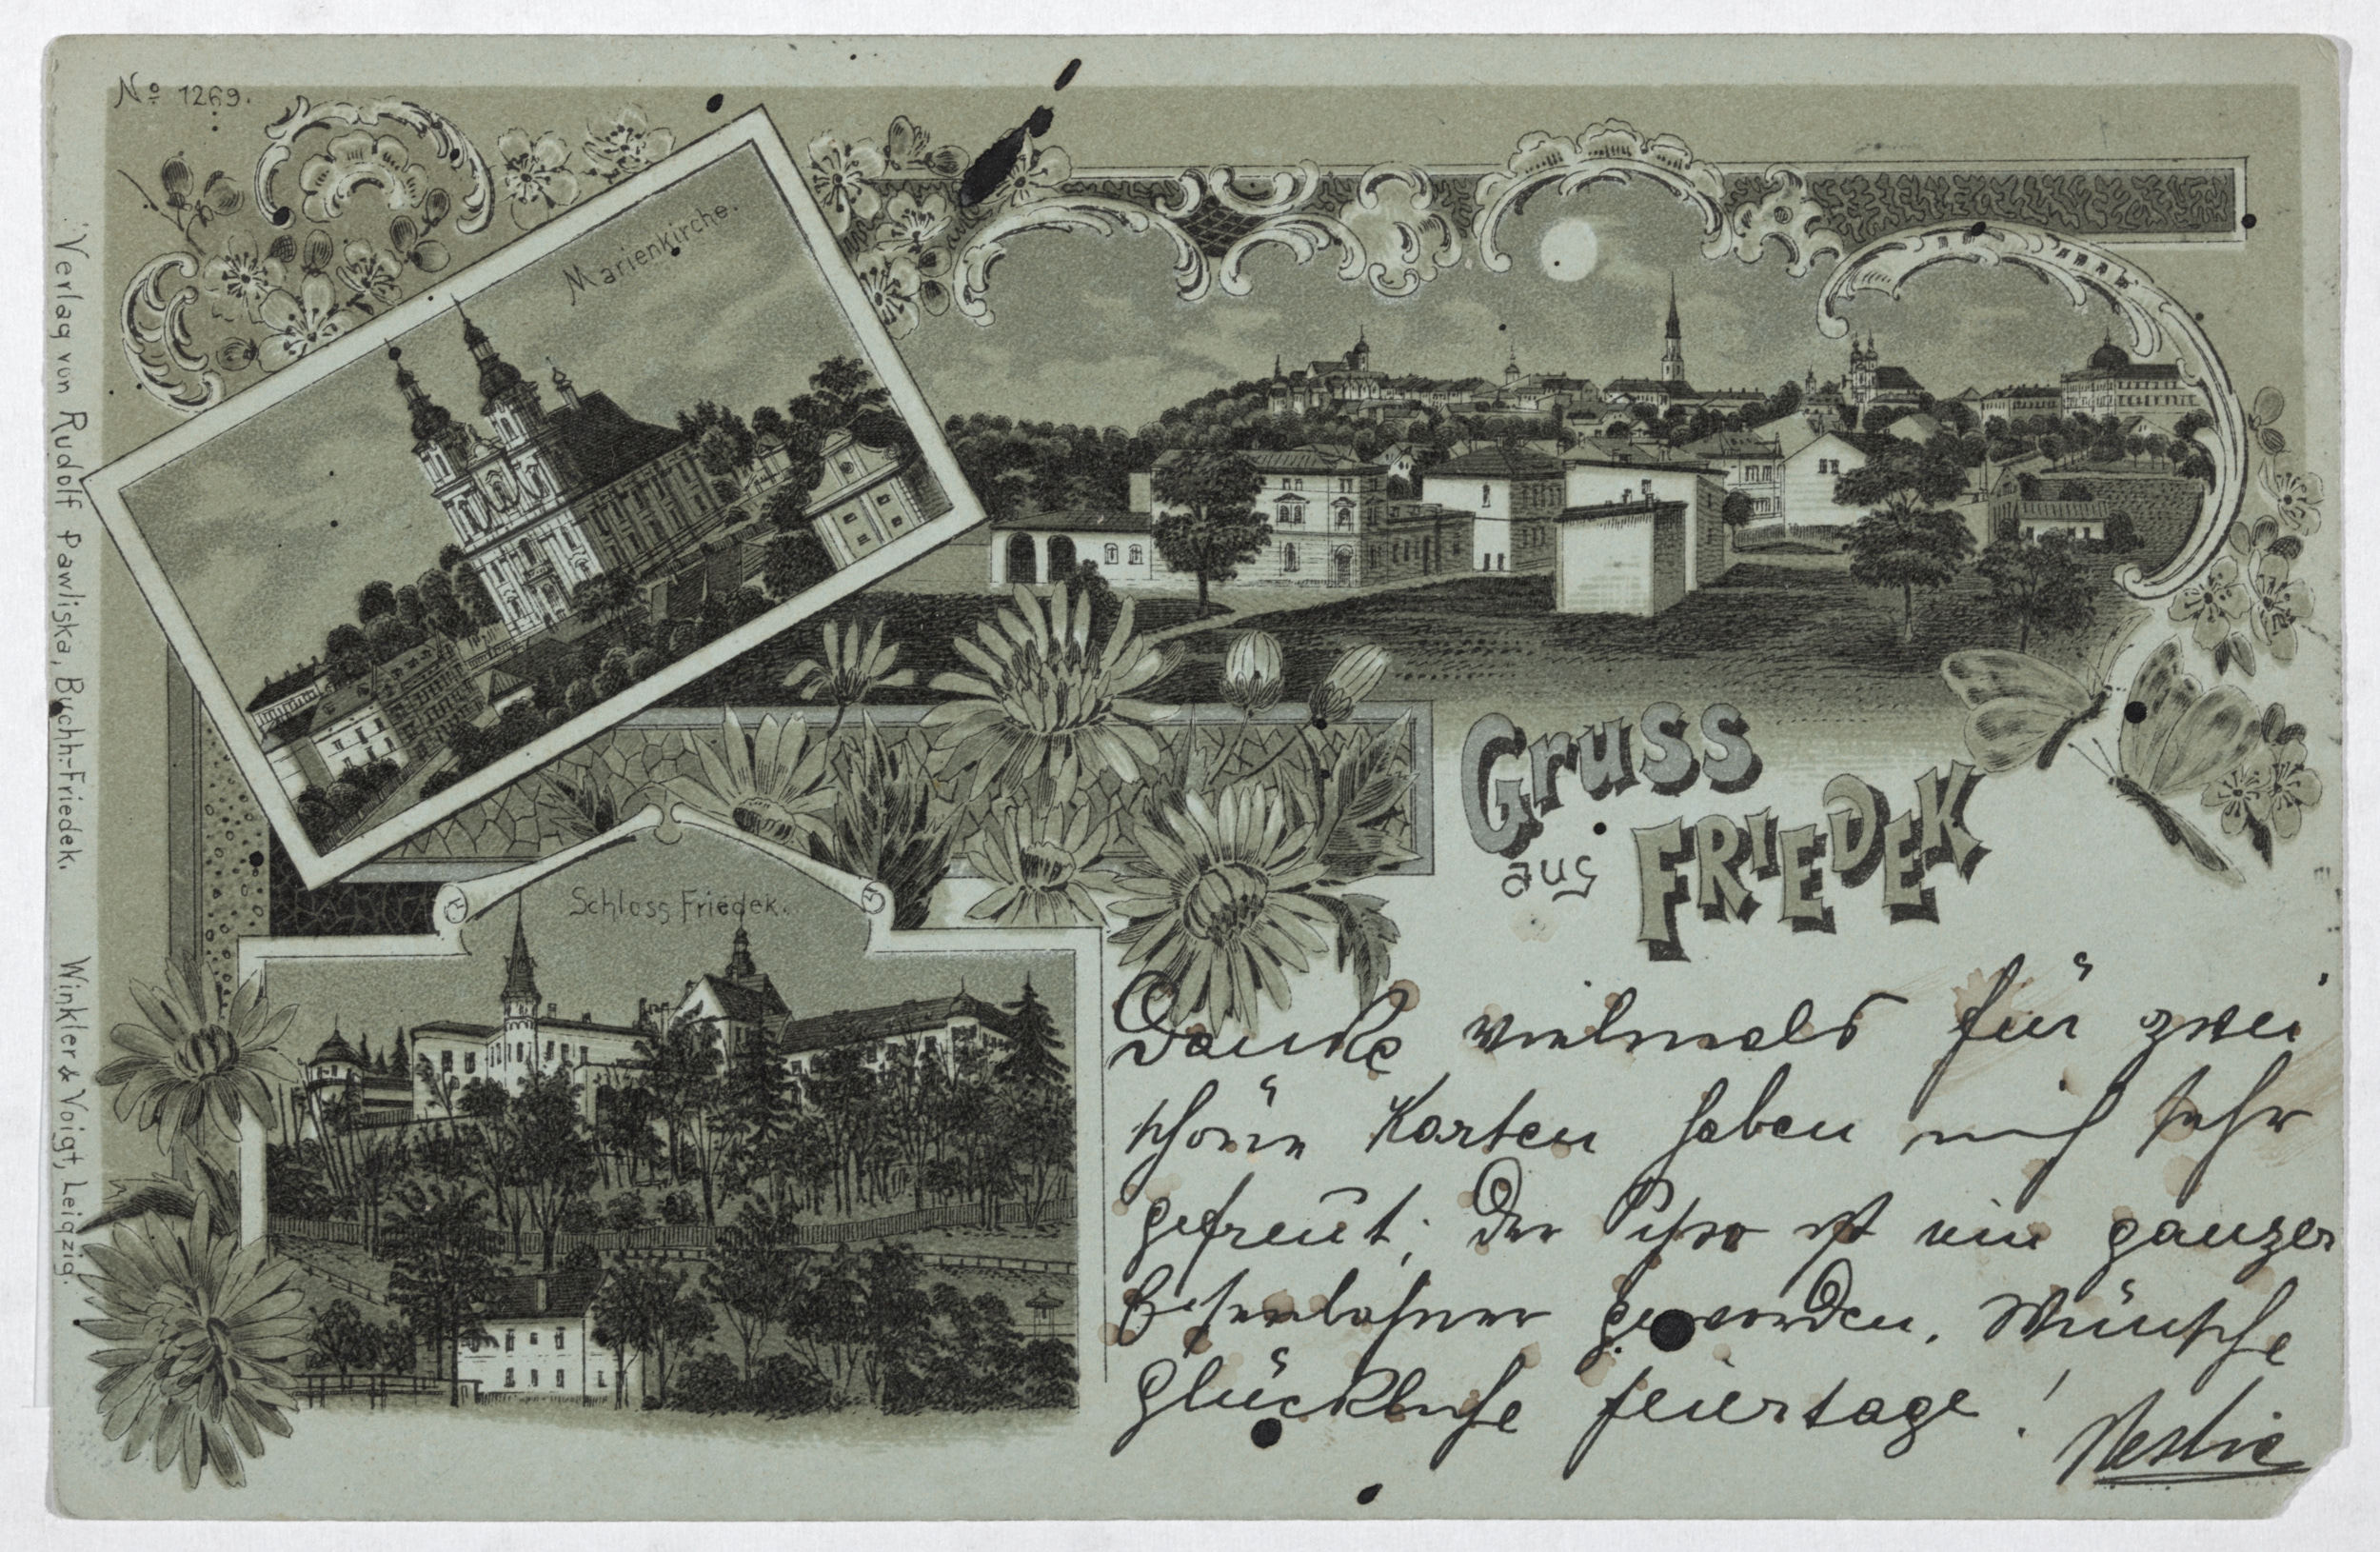 No 1269.
Marienkirche.
Verlag von Rudolf Pawliska, Buchh.-Friedek.
Winkler & Voigt, Leipzig.
Schloss Friedek.
Gruss
aus
FRIEDEK
Danke vielmals für zwei
schöne Karten haben mich sehr
gefreut; Der ist ein ganzer
geworden. Wünsche
glückliche feiertage!